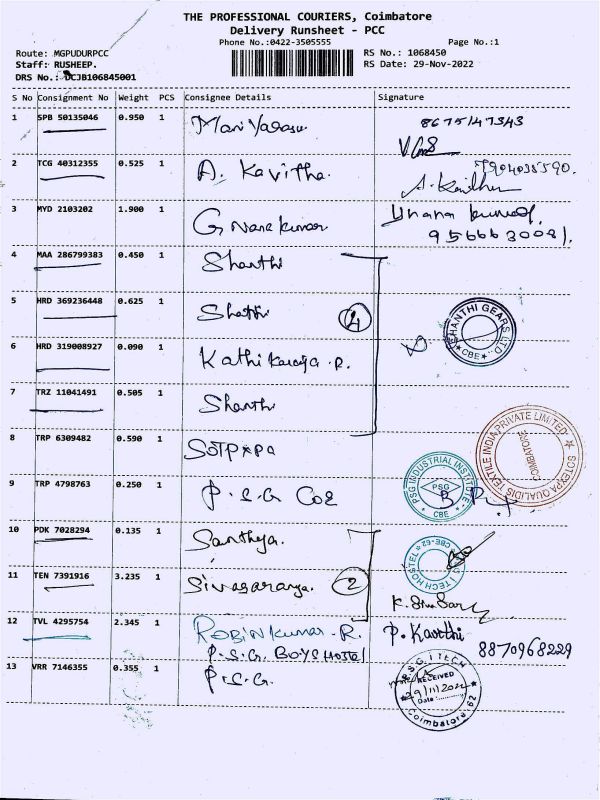 THE PROFESSIONAL COURIERS, Coimbatore
Delivery Runsheet - PCC
Phone No.:0422-3505555 Page No.:1
Route: MGPUDURPCC RS No.: 1068450
Staff: RUSHEEP. RS Date: 29-Nov-2022
DRS No.: DCJB106845001
S No Consignment No Weight PCS Consignee Details Signature
1 SPB 50135046 0.950 1 8675147343
2 TCG 40312355 0.525 1 A. Kavitha. 7904035590.
3 MYD 2103202 1.900 1 G
4 MAA 286799383 0.450 1 Shanthi
5 HRD 369236448 0.625 1 4 SHANTHI GEARS LTD CBE
6 HRD 319008927 0.090 1
7 TRZ 11041491 0.505 1 Shanthi
8 TRP 6309482 0.590 1 SOTEXPA QUALIDIS TEXTILE INDIA PRIVATE LIMITED COIMBATORE
9 TRP 4798763 0.250 1 P.S.G COE PSG INDUSTRIAL INSTITUTE PSG CBE
10 PDK 7028294 0.135 1 Santhya. I TECH HOSTEL CBE-62
11 TEN 7391916 3.235 1 2
12 TVL 4295754 2.345 1 ROBIN kumar. R. P. Karthi 8870968229
P.S.G. BOYS HOSTEL
13 VRR 7146355 0.355 1 P.S.G. P.S.G. I TECH RECEIVED Date : 29/11/2022 Coimbatore-62